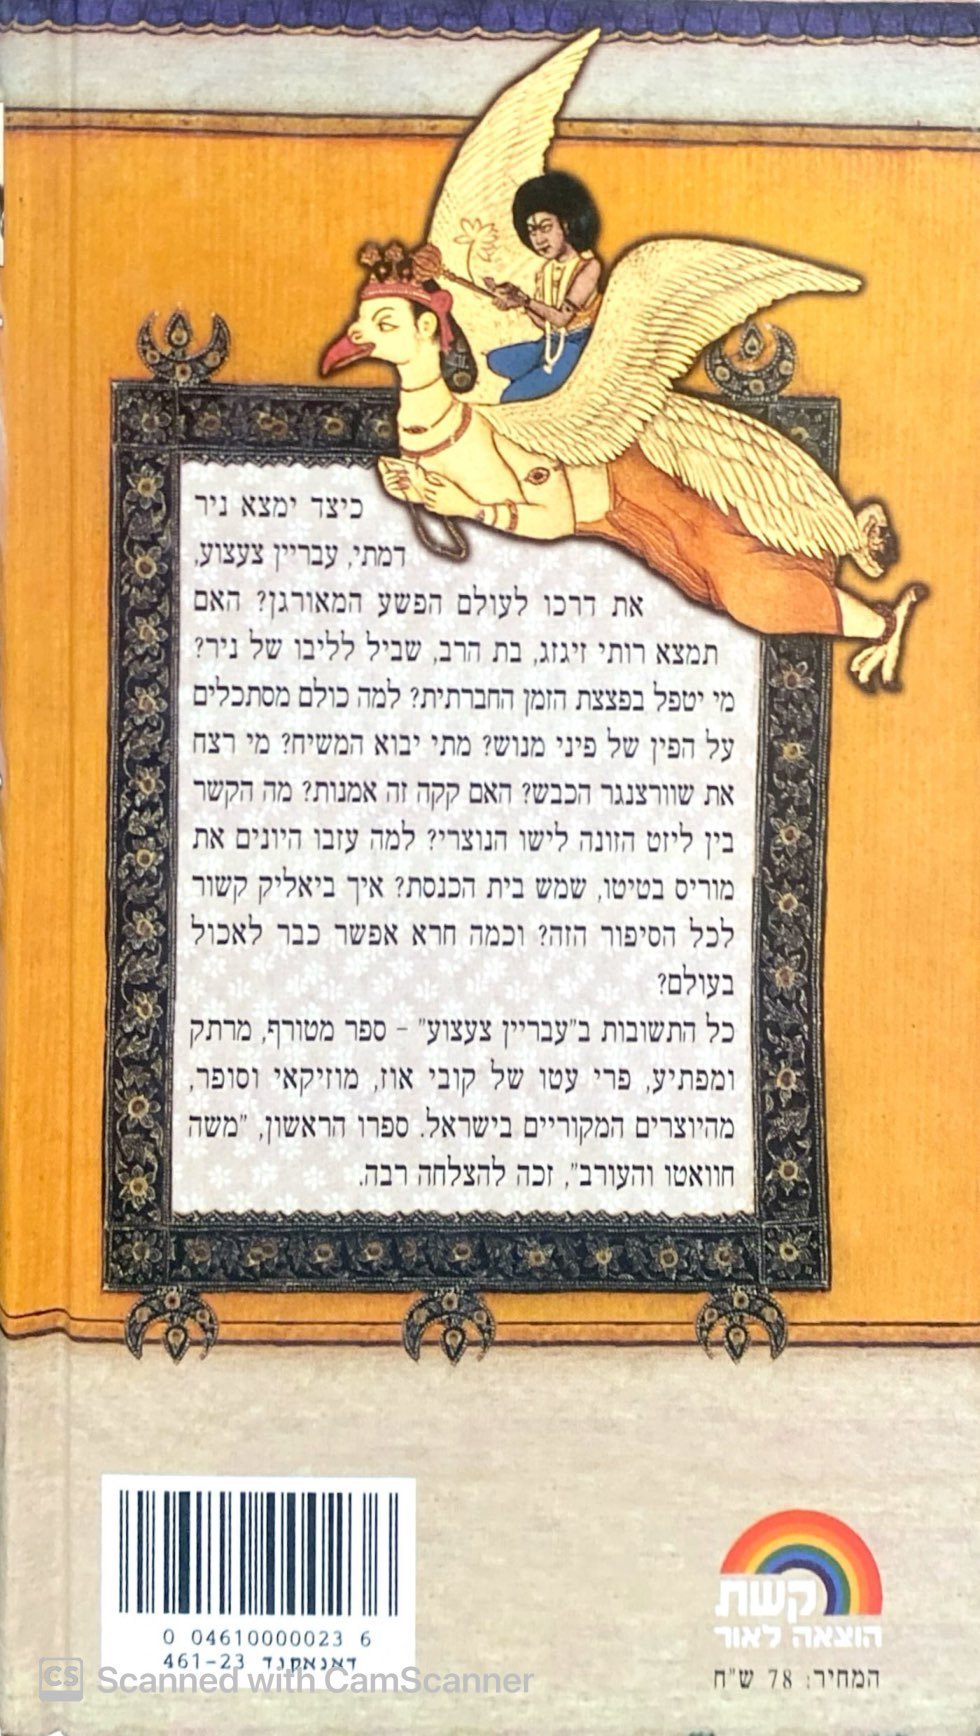 כיצד ימצא ניר
דמתי, עבריין צעצוע,
את דרכו לעולם הפשע המאורגן? האם
תמצא רותי זיגזג, בת הרב, שביל לליבו של ניר?
מי יטפל בפצצת הזמן החברתית? למה כולם מסתכלים
על הפין של פיני מנוש? מתי יבוא המשיח? מי רצח
את שוורצנגר הכבש? האם קקה זה אמנות? מה הקשר
בין ליזט הזונה לישו הנוצרי? למה עזבו היונים את
מוריס בטיטו, שמש בית הכנסת? איך ביאליק קשור
לכל הסיפור הזה? וכמה חרא אפשר כבר לאכול
בעולם?
כל התשובות ב"עבריין צעצוע" – ספר מטורף, מרתק
ומפתיע, פרי עטו של קובי אוז, מוזיקאי וסופר,
מהיוצרים המקוריים בישראל. ספרו הראשון, "משה
חוואטו והעורב", זכה להצלחה רבה.
קשת
הוצאה לאור
המחיר: 78 ש"ח
0 04610000023 6
דאנאקנד 461-23
CS Scanned with CamScanner